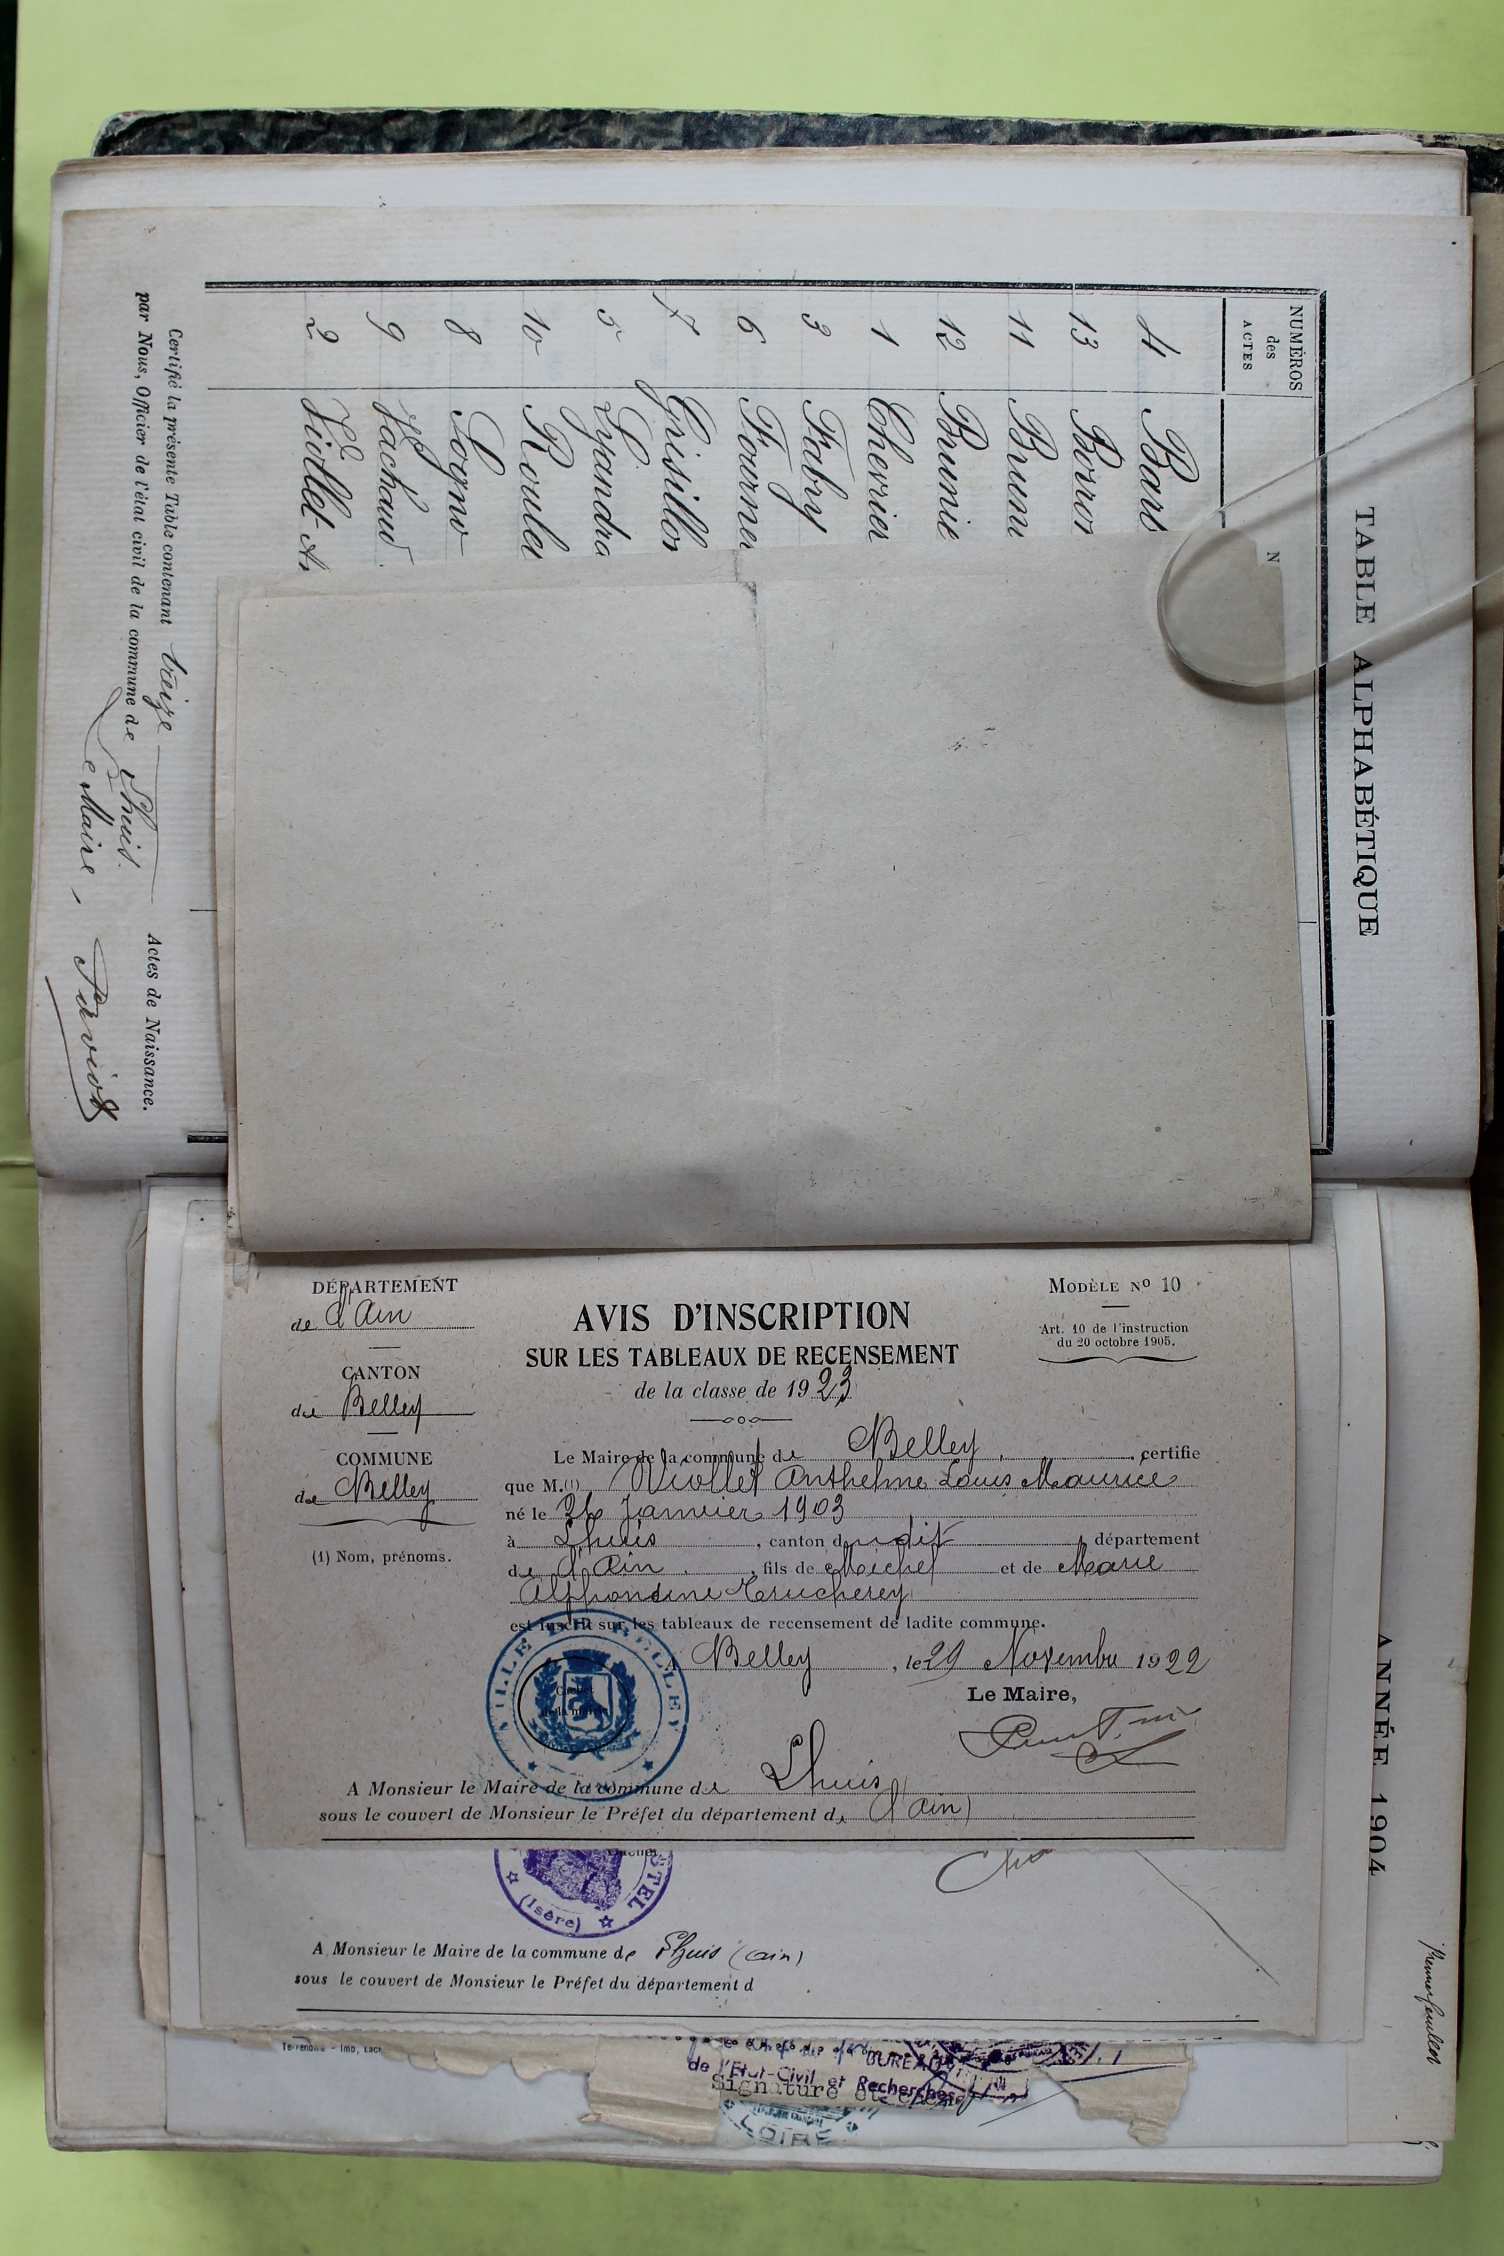 TABLE ALPHABÉTIQUE
NUMÉROS
des
ACTES
N
4
13 Borron
11
12
1 Chevrier
3 Fabry
6
7
5
10
8
9 Vachaud
2 Viollet
Certifié la présente Table contenant treize
Actes de Naissance.
par Nous, Officier de l'état civil de la commune de Lhuis.
Maire,
ANNÉE 1904
DÉPARTEMENT
de l'Ain
CANTON
de Belley
COMMUNE
de Belley
(1) Nom, prénoms.
MODÈLE No 10
Art. 10 de l'instruction
du 20 octobre 1905.
AVIS D'INSCRIPTION
SUR LES TABLEAUX DE RECENSEMENT
de la classe de 1923
Le Maire de la commune de Belley, certifie
que M.(1) Viollet Anthelme Louis Maurice
né le 26 Janvier 1903
à Lhuis, canton dudit, département
de l'Ain, fils de Michel et de Marie
Alphonsine Trucherey
est inscrit sur les tableaux de recensement de ladite commune.
Belley, le 29 Novembre 1922
Le Maire,
VILLE DE BELLEY
A Monsieur le Maire de la commune de Lhuis
sous le couvert de Monsieur le Préfet du département de l'Ain
STEL
(Isère)
A Monsieur le Maire de la commune de Lhuis (Ain)
sous le couvert de Monsieur le Préfet du département d
BUREAU
de l'Etat-Civil et Recherches
Signature et
LOIRE